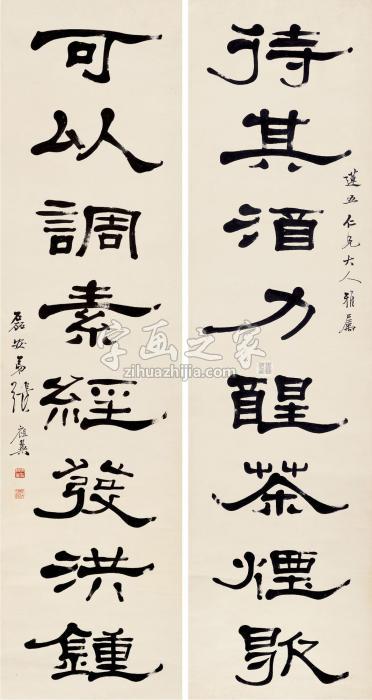 待其酒力醒茶煙歇
五仁兄大人雅屬
可以調素經發洪鍾
磊弟張祖翼
字画之家
zihuazhijia.com